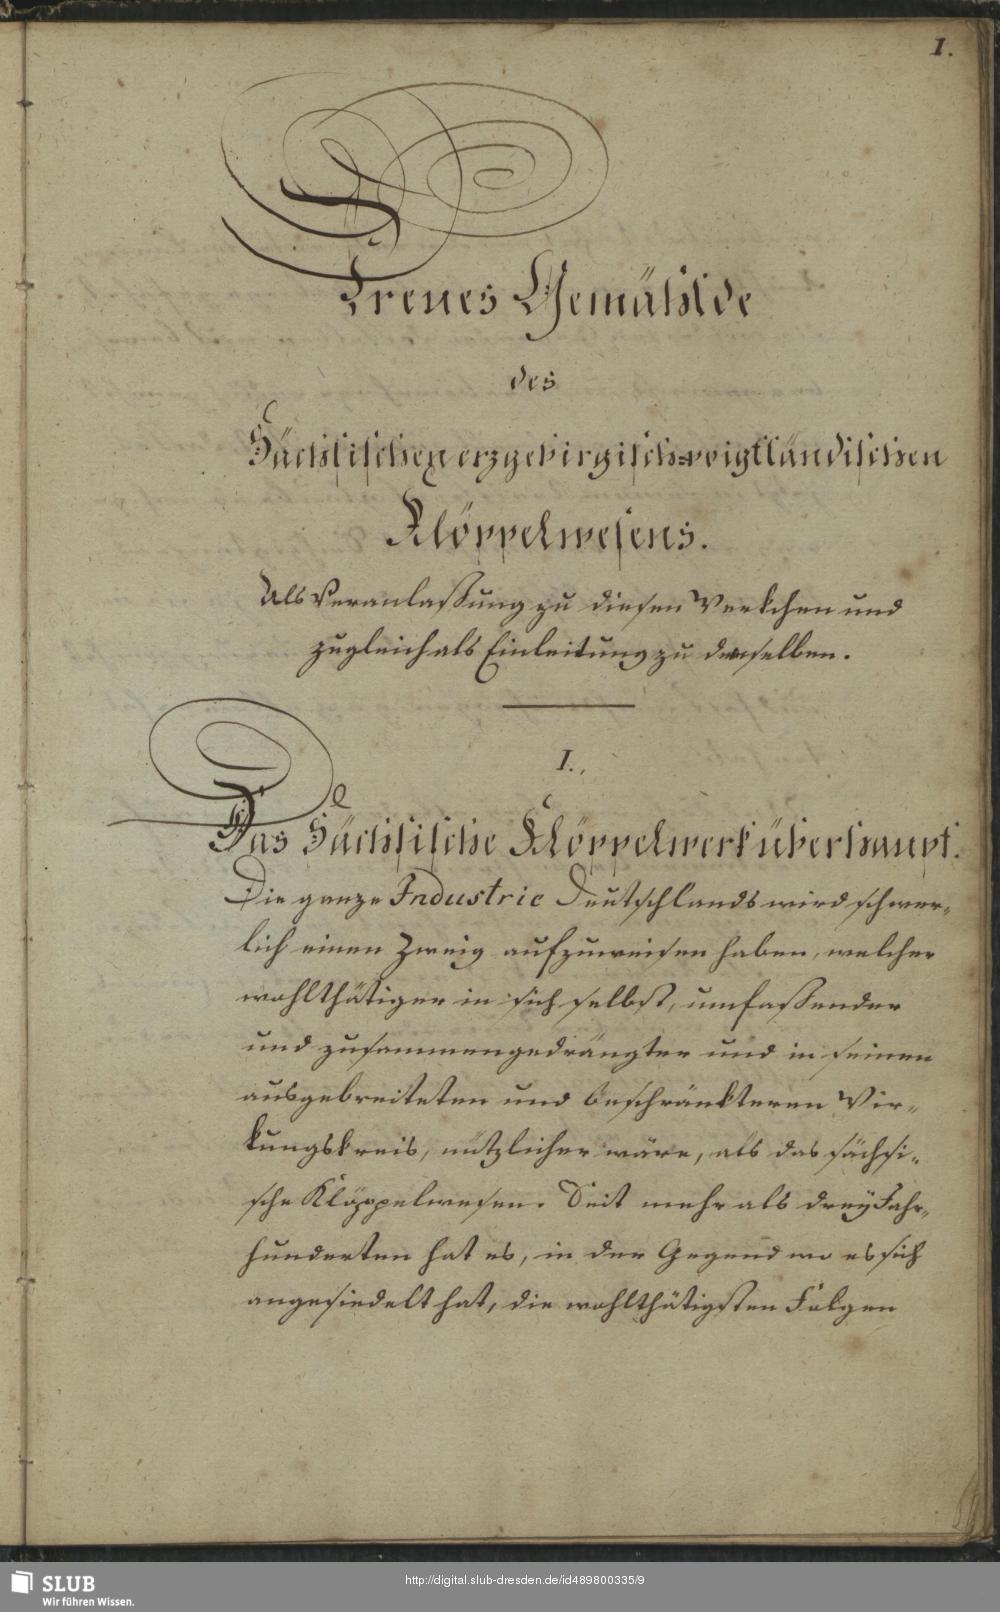 1.
Treues Gemählde
des
Sächsischen erzgebirgisch=voigtländischen
Klöppelwesens.
Als Veranlaßung zu diesen Werkchen und
zugleich als Einleitung zu demselben.
I.,
Das Sächsische Klöppelwerk überhaupt.
Die ganze Industrie Deutschlands wird schwer-
lich einen Zweig aufzuweisen haben, welcher
wohlthätiger in sich selbst, umfaßender
und zusammengedrängter und in seinen
ausgebreiteten und beschränkteren Wir-
kungskreis, nützlicher wäre, als das sächsi-
sche Klöppelwesen. Seit mehr als drey Jahr-
hunderten hat es, in der Gegend wo es sich
angesiedelt hat, die wohlthätigsten Folgen
SLUB
Wir führen Wissen.
http://digital.slub-dresden.de/id489800335/9